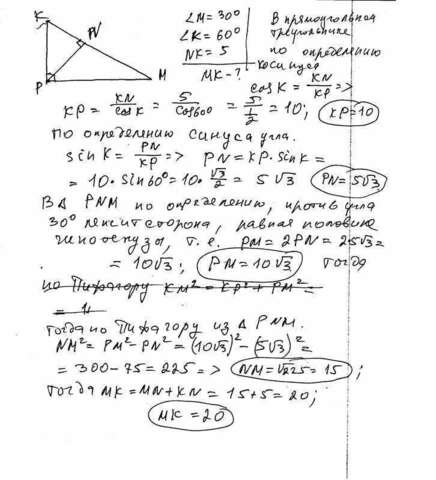 K
N
P
M
∠M = 30°
∠K = 60°
NK = 5
MK - ?
В прямоугольном
треугольнике
по определению
косинуса
cos K = KN/KP =>
KP = KN/cos K = 5/cos 60° = 5/(1/2) = 10; KP = 10
По определению синуса угла.
sin K = PN/KP => PN = KP · sin K =
= 10 · sin 60° = 10 · √3/2 = 5√3 PN = 5√3
В Δ PNM по определению, против угла
30° лежит сторона, равная половине
гипотенузы, т.е. PM = 2PN = 2·5√3 =
= 10√3; PM = 10√3 тогда
по Пифагору KM² = KP² + PM² =
=
тогда по Пифагору из Δ PNM.
NM² = PM² - PN² = (10√3)² - (5√3)² =
= 300 - 75 = 225 => NM = √225 = 15;
тогда MK = MN + KN = 15 + 5 = 20;
MK = 20